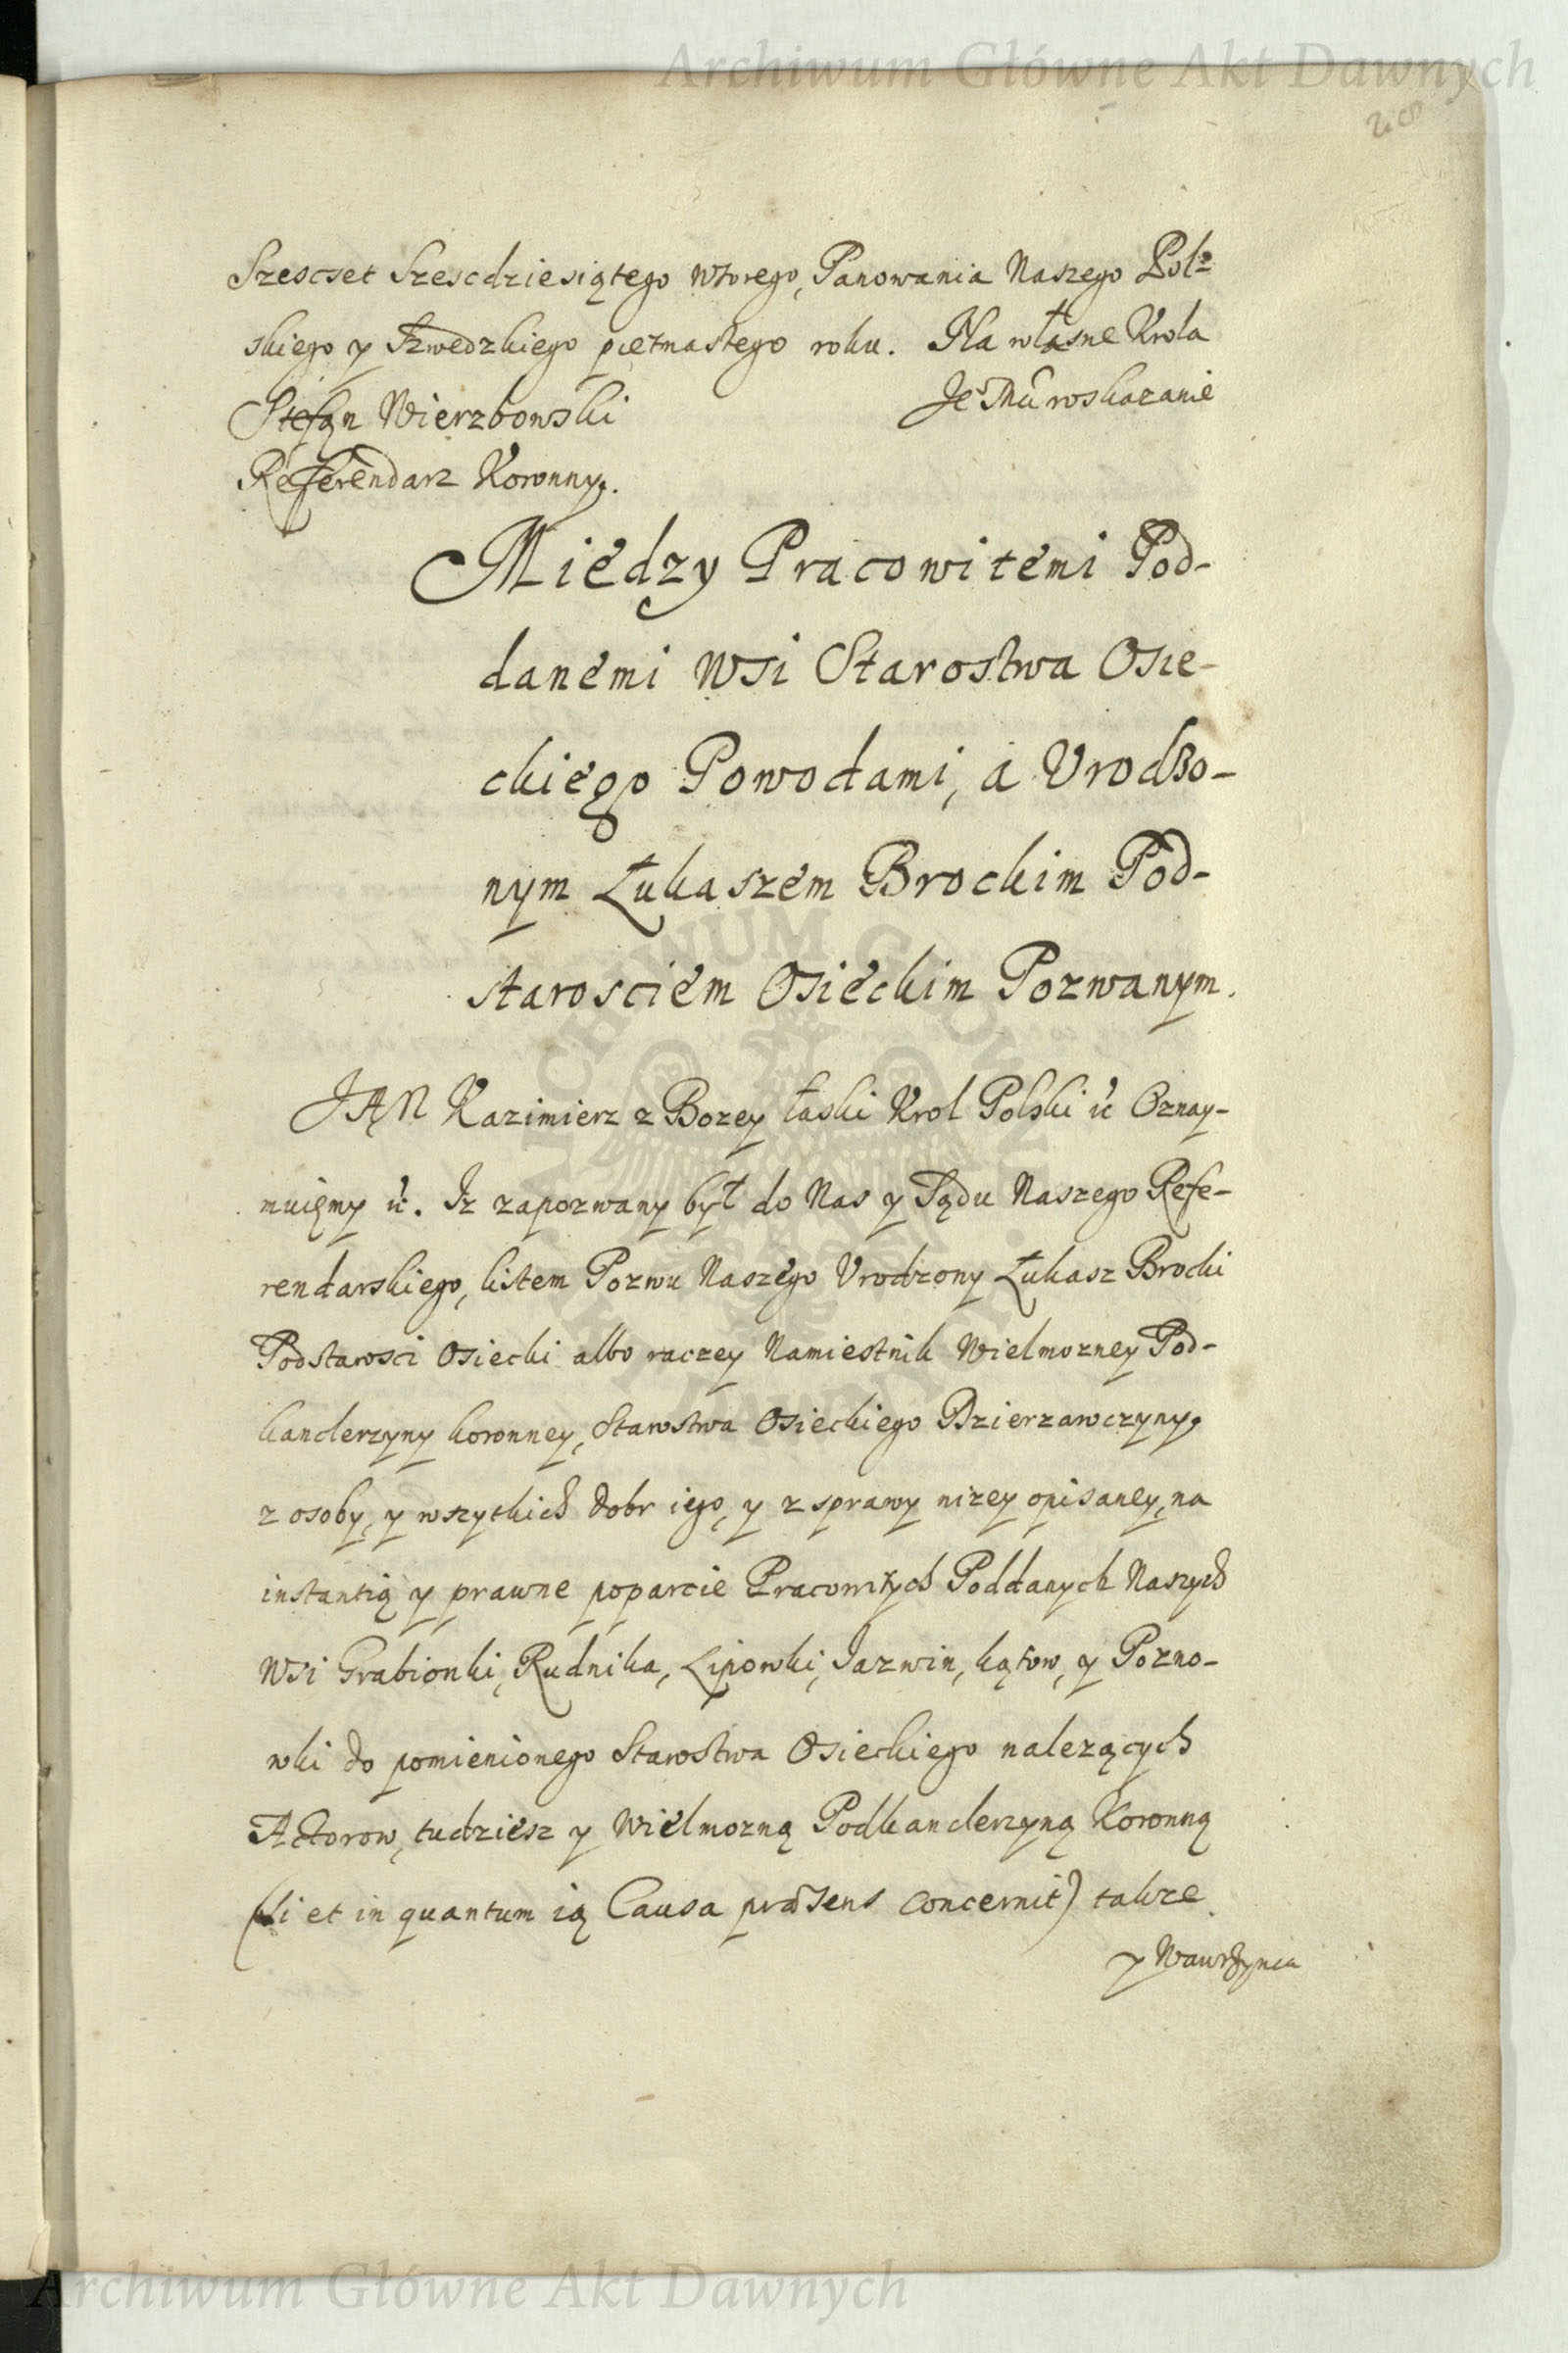 Archiwum Główne Akt Dawnych
Szescset Szescdziesiątego wtorego, Panowania Naszego Pol=
skiego y Szwedzkiego piętnastego roku. Na własne Krola
Stefan Wierzbowski Je° Mci roskazanie
Referendarz Koronny.
Miedzy Pracowitemi Pod-
danemi Wsi Starostwa Osie-
ckiego Powodami, a Vrodzo-
nym Łukaszem Brockim Pod-
starosciem Osieckim Pozwanym.
JAN Kazimierz z Bozey łaski Krol Polski &c Oznay-
muięmy &c. Iz zapozwany był do Nas y Sądu Naszego Refe-
rendarskiego, listem Pozwu Naszego Vrodzony Łukasz Brocki
Podstarosci Osiecki albo raczey Namiestnik Wielmozney Pod-
kanclerzyny koronney, Starostwa Osieckiego Dzierzawczyny,
z osoby, y wszytkich dobr iego, y z sprawy nizey opisaney, na
instantią y prawne poparcie Pracowitych Poddanych Naszych
Wsi Grabionki, Rudnika, Lipowki, Jazwin, kątow, y Pozno-
wki do pomienionego Starostwa Osieckiego nalezących
Actorow, tudziesz y Wielmozną Podkanclerzyną Koronną
(si et in quantum ią Causa præsens concernit) takze
y Wawrzynca
Archiwum Główne Akt Dawnych